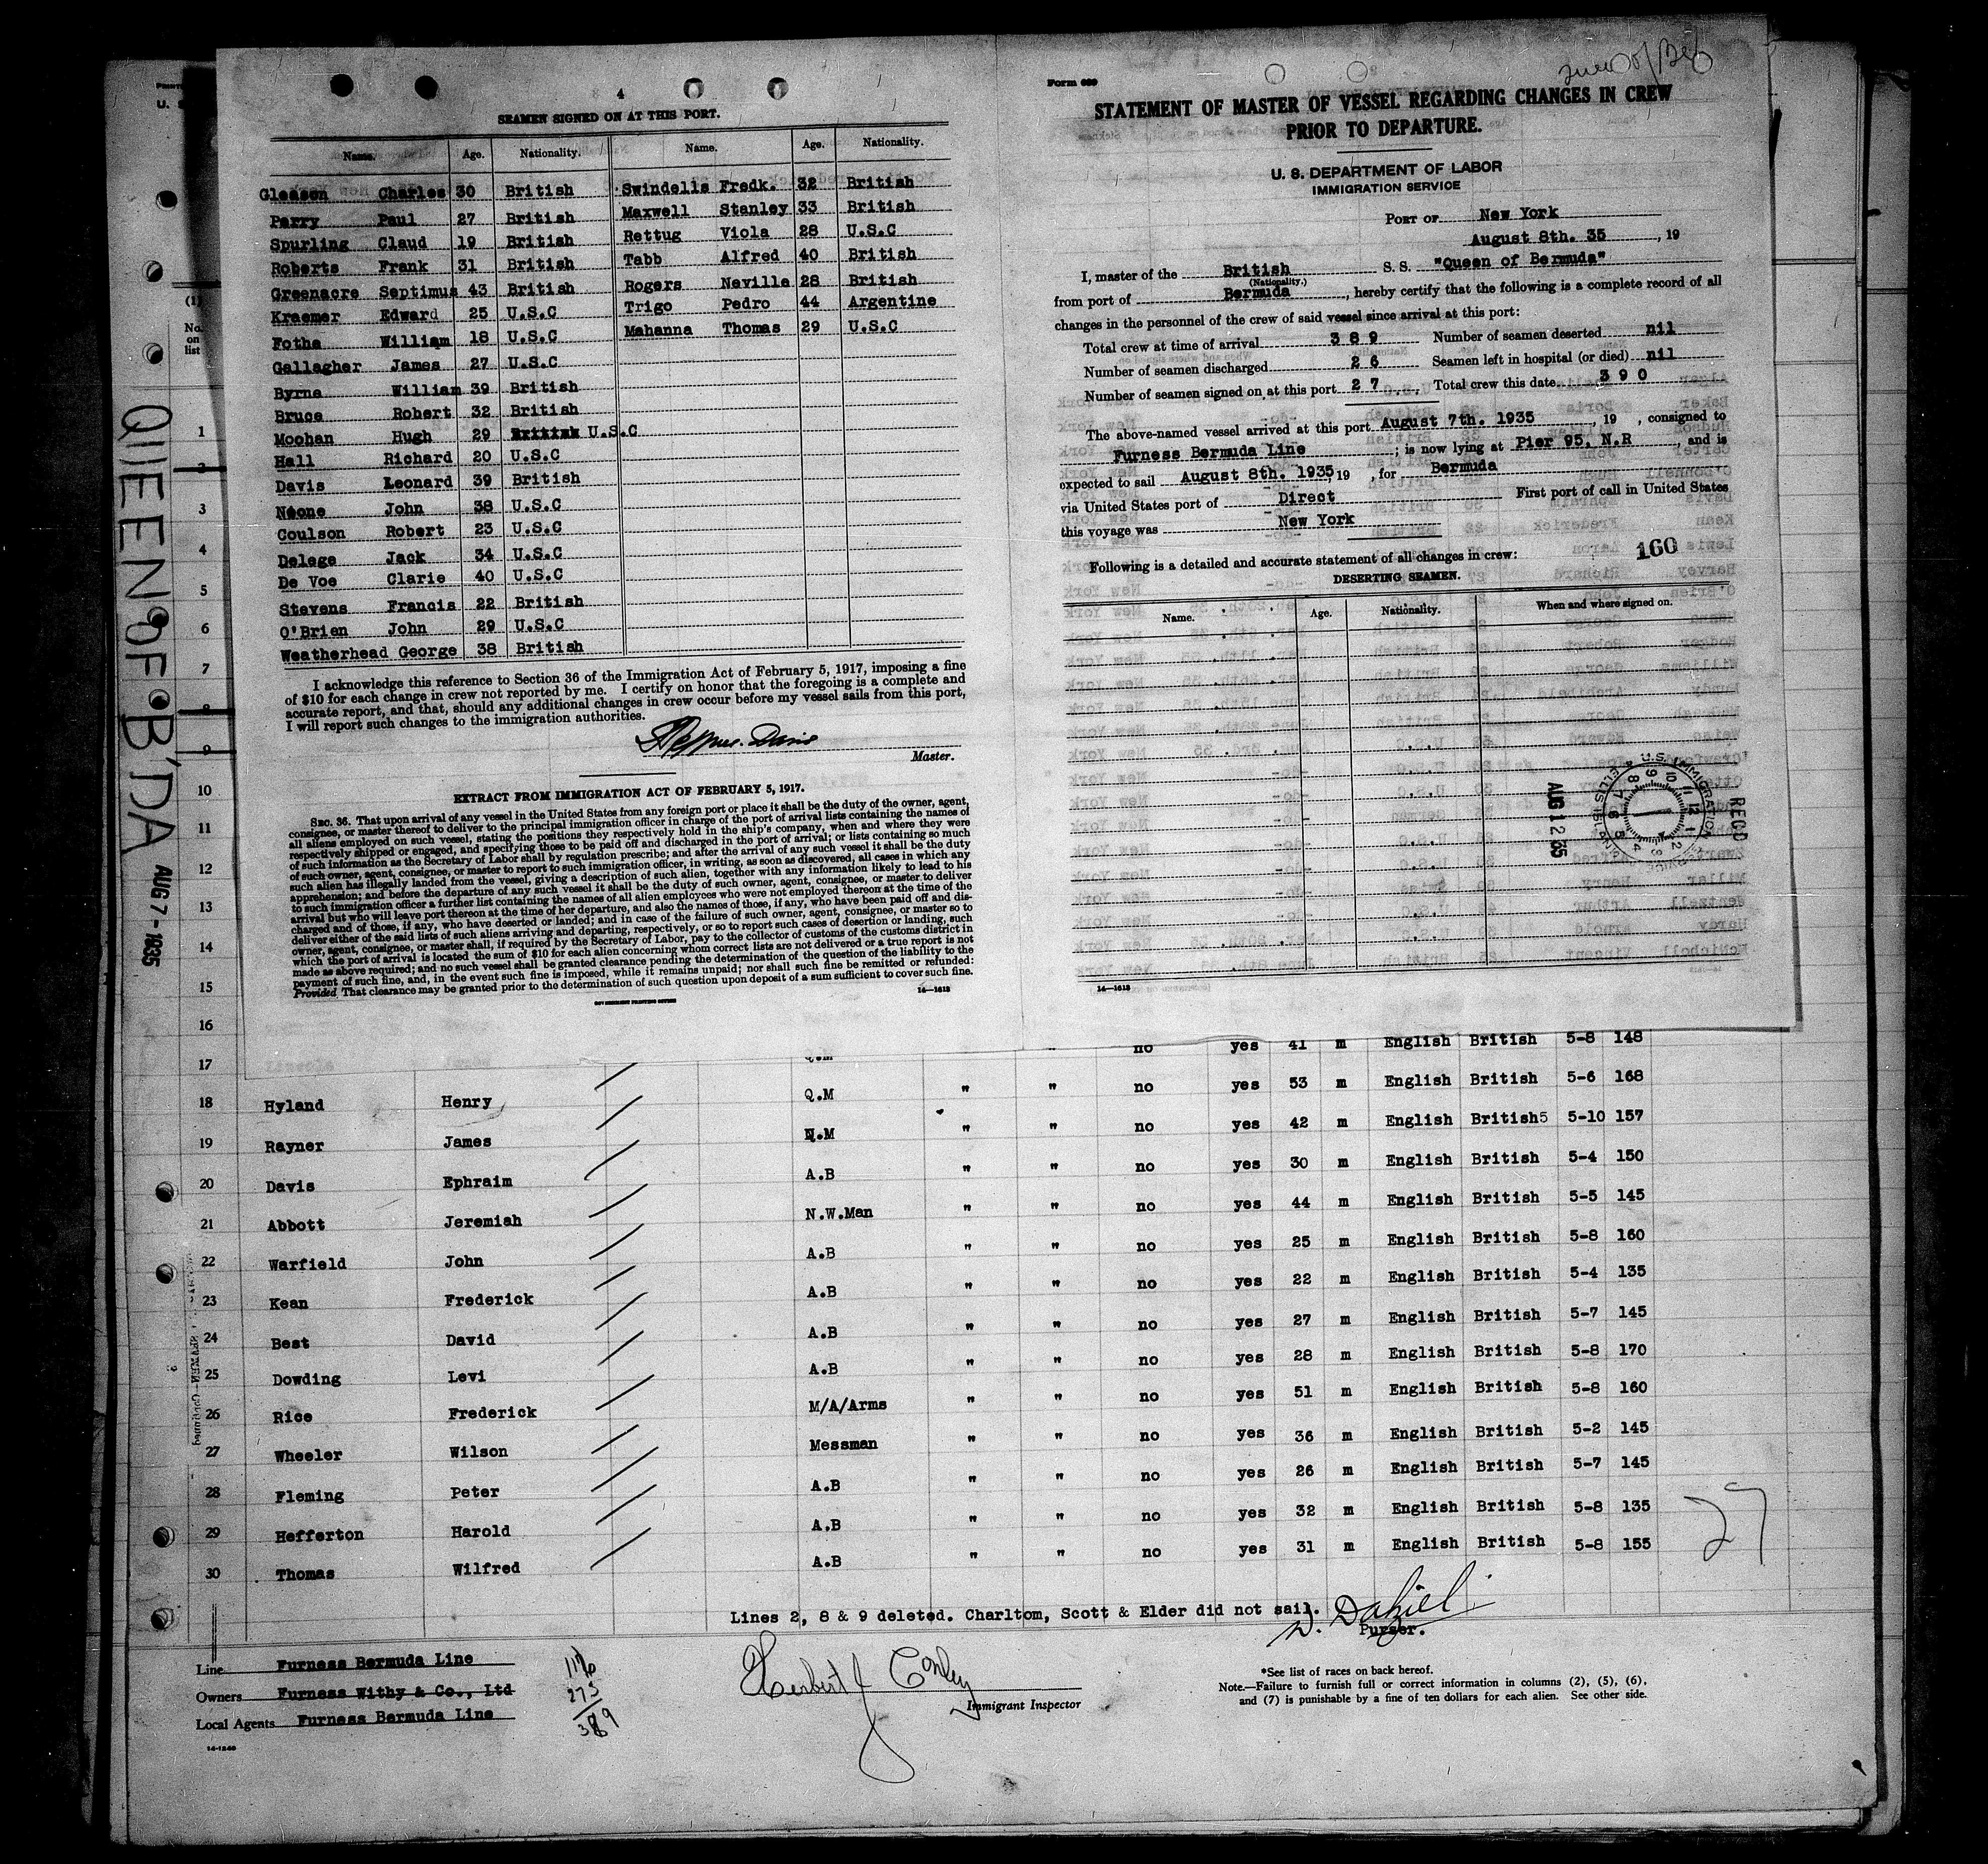 4
SEAMEN SIGNED ON AT THIS PORT.
Name. Age. Nationality. Name. Age. Nationality.
Gleason Charles 30 British Swindells Fredk. 32 British
Perry Paul 27 British Maxwell Stanley 33 British
Spurling Claud 19 British Rettug Viola 28 U.S.C
Roberts Frank 31 British Tabb Alfred 40 British
Greenacre Septimus 43 British Rogers Neville 28 British
Kraemer Edward 25 U.S.C Trigo Pedro 44 Argentine
Fotha William 18 U.S.C Mahanna Thomas 29 U.S.C
Gallagher James 27 U.S.C
Byrne William 39 British
Bruce Robert 32 British
Moohan Hugh 29 British U.S.C
Hall Richard 20 U.S.C
Davis Leonard 39 British
Neone John 38 U.S.C
Coulson Robert 23 U.S.C
Delege Jack 34 U.S.C
De Voe Clarie 40 U.S.C
Stevens Francis 22 British
O'Brien John 29 U.S.C
Weatherhead George 38 British
I acknowledge this reference to Section 36 of the Immigration Act of February 5, 1917, imposing a fine
of $10 for each change in crew not reported by me. I certify on honor that the foregoing is a complete and
accurate report, and that, should any additional changes in crew occur before my vessel sails from this port,
I will report such changes to the immigration authorities.
Davis
Master.
EXTRACT FROM IMMIGRATION ACT OF FEBRUARY 5, 1917.
SEC. 36. That upon arrival of any vessel in the United States from any foreign port or place it shall be the duty of the owner, agent,
consignee, or master thereof to deliver to the principal immigration officer in charge of the port of arrival lists containing the names of
all aliens employed on such vessel, stating the positions they respectively hold in the ship's company, when and where they were
respectively shipped or engaged, and specifying those to be paid off and discharged in the port of arrival; or lists containing so much
of such information as the Secretary of Labor shall by regulation prescribe; and after the arrival of any such vessel it shall be the duty
of such owner, agent, consignee, or master to report to such immigration officer, in writing, as soon as discovered, all cases in which any
such alien has illegally landed from the vessel, giving a description of such alien, together with any information likely to lead to his
apprehension; and before the departure of any such vessel it shall be the duty of such owner, agent, consignee, or master to deliver
to such immigration officer a further list containing the names of all alien employees who were not employed thereon at the time of the
arrival but who will leave port thereon at the time of her departure, and also the names of those, if any, who have been paid off and dis-
charged and of those, if any, who have deserted or landed; and in case of the failure of such owner, agent, consignee, or master so to
deliver either of the said lists of such aliens arriving and departing, respectively, or so to report such cases of desertion or landing, such
owner, agent, consignee, or master shall, if required by the Secretary of Labor, pay to the collector of customs of the customs district in
which the port of arrival is located the sum of $10 for each alien concerning whom correct lists are not delivered or a true report is not
made as above required; and no such vessel shall be granted clearance pending the determination of the question of the liability to the
payment of such fine, and, in the event such fine is imposed, while it remains unpaid; nor shall such fine be remitted or refunded:
Provided, That clearance may be granted prior to the determination of such question upon deposit of a sum sufficient to cover such fine.
GOVERNMENT PRINTING OFFICE
14—1613
Form 689
STATEMENT OF MASTER OF VESSEL REGARDING CHANGES IN CREW
PRIOR TO DEPARTURE.
U. S. DEPARTMENT OF LABOR
IMMIGRATION SERVICE
PORT OF New York
August 8th. 35, 19
I, master of the British S. S. "Queen of Bermuda"
(Nationality.)
from port of Bermuda, hereby certify that the following is a complete record of all
changes in the personnel of the crew of said vessel since arrival at this port:
Total crew at time of arrival 389 Number of seamen deserted nil
Number of seamen discharged 26 Seamen left in hospital (or died) nil
Number of seamen signed on at this port 27 Total crew this date 390
The above-named vessel arrived at this port August 7th. 1935, 19 , consigned to
Furness Bermuda Line; is now lying at Pier 95, N.R, and is
expected to sail August 8th. 1935, 19 , for Bermuda
via United States port of Direct First port of call in United States
this voyage was New York
Following is a detailed and accurate statement of all changes in crew:
160
DESERTING SEAMEN.
Name. Age. Nationality. When and where signed on.
REC'D
U.S. IMMIGRATION SERVICE ELLIS ISLAND
AUG 12 35
14—1613
QUEEN OF B'DA AUG 7 - 1935
(1)
No.
on
list
1
2
3
4
5
6
7
8
9
10
11
12
13
14
15
16
17 Q.M " no yes 41 m English British 5-8 148
18 Hyland Henry Q.M " " no yes 53 m English British 5-6 168
19 Rayner James Q.M " " no yes 42 m English British5 5-10 157
20 Davis Ephraim A.B " " no yes 30 m English British 5-4 150
21 Abbott Jeremiah N.W.Man " " no yes 44 m English British 5-5 145
22 Warfield John A.B " " no yes 25 m English British 5-8 160
23 Kean Frederick A.B " " no yes 22 m English British 5-4 135
24 Best David A.B " " no yes 27 m English British 5-7 145
25 Dowding Levi A.B " " no yes 28 m English British 5-8 170
26 Rice Frederick M/A/Arms " " no yes 51 m English British 5-8 160
27 Wheeler Wilson Messman " " no yes 36 m English British 5-2 145
28 Fleming Peter A.B " " no yes 26 m English British 5-7 145
29 Hefferton Harold A.B " " no yes 32 m English British 5-8 135
30 Thomas Wilfred A.B " " no yes 31 m English British 5-8 155
27
Lines 2, 8 & 9 deleted. Charltom, Scott & Elder did not sail.
Purser.
Line Furness Bermuda Line
Owners Furness Withy & Co., Ltd
Local Agents Furness Bermuda Line
14-1240
273
389
Herbert J Conley
Immigrant Inspector
*See list of races on back hereof.
Note.—Failure to furnish full or correct information in columns (2), (5), (6),
and (7) is punishable by a fine of ten dollars for each alien. See other side.